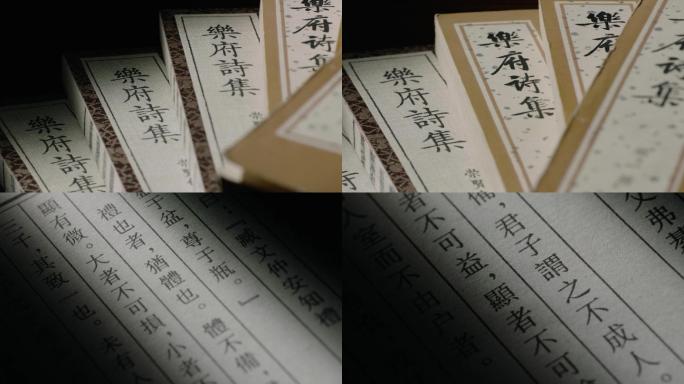 樂府詩集
樂府詩集
樂府詩集
樂府诗集
樂府詩集
樂府诗集
樂府
樂府诗集
曰：「臧文仲安知禮
于盆，尊于瓶。」
禮也者，猶體也。體不備，
顯有微。大者不可損，小者不
三千，其致一也。未有入
父弗基
備，君子謂之不成人。
者不可益，顯者不可
入室而不由户者。